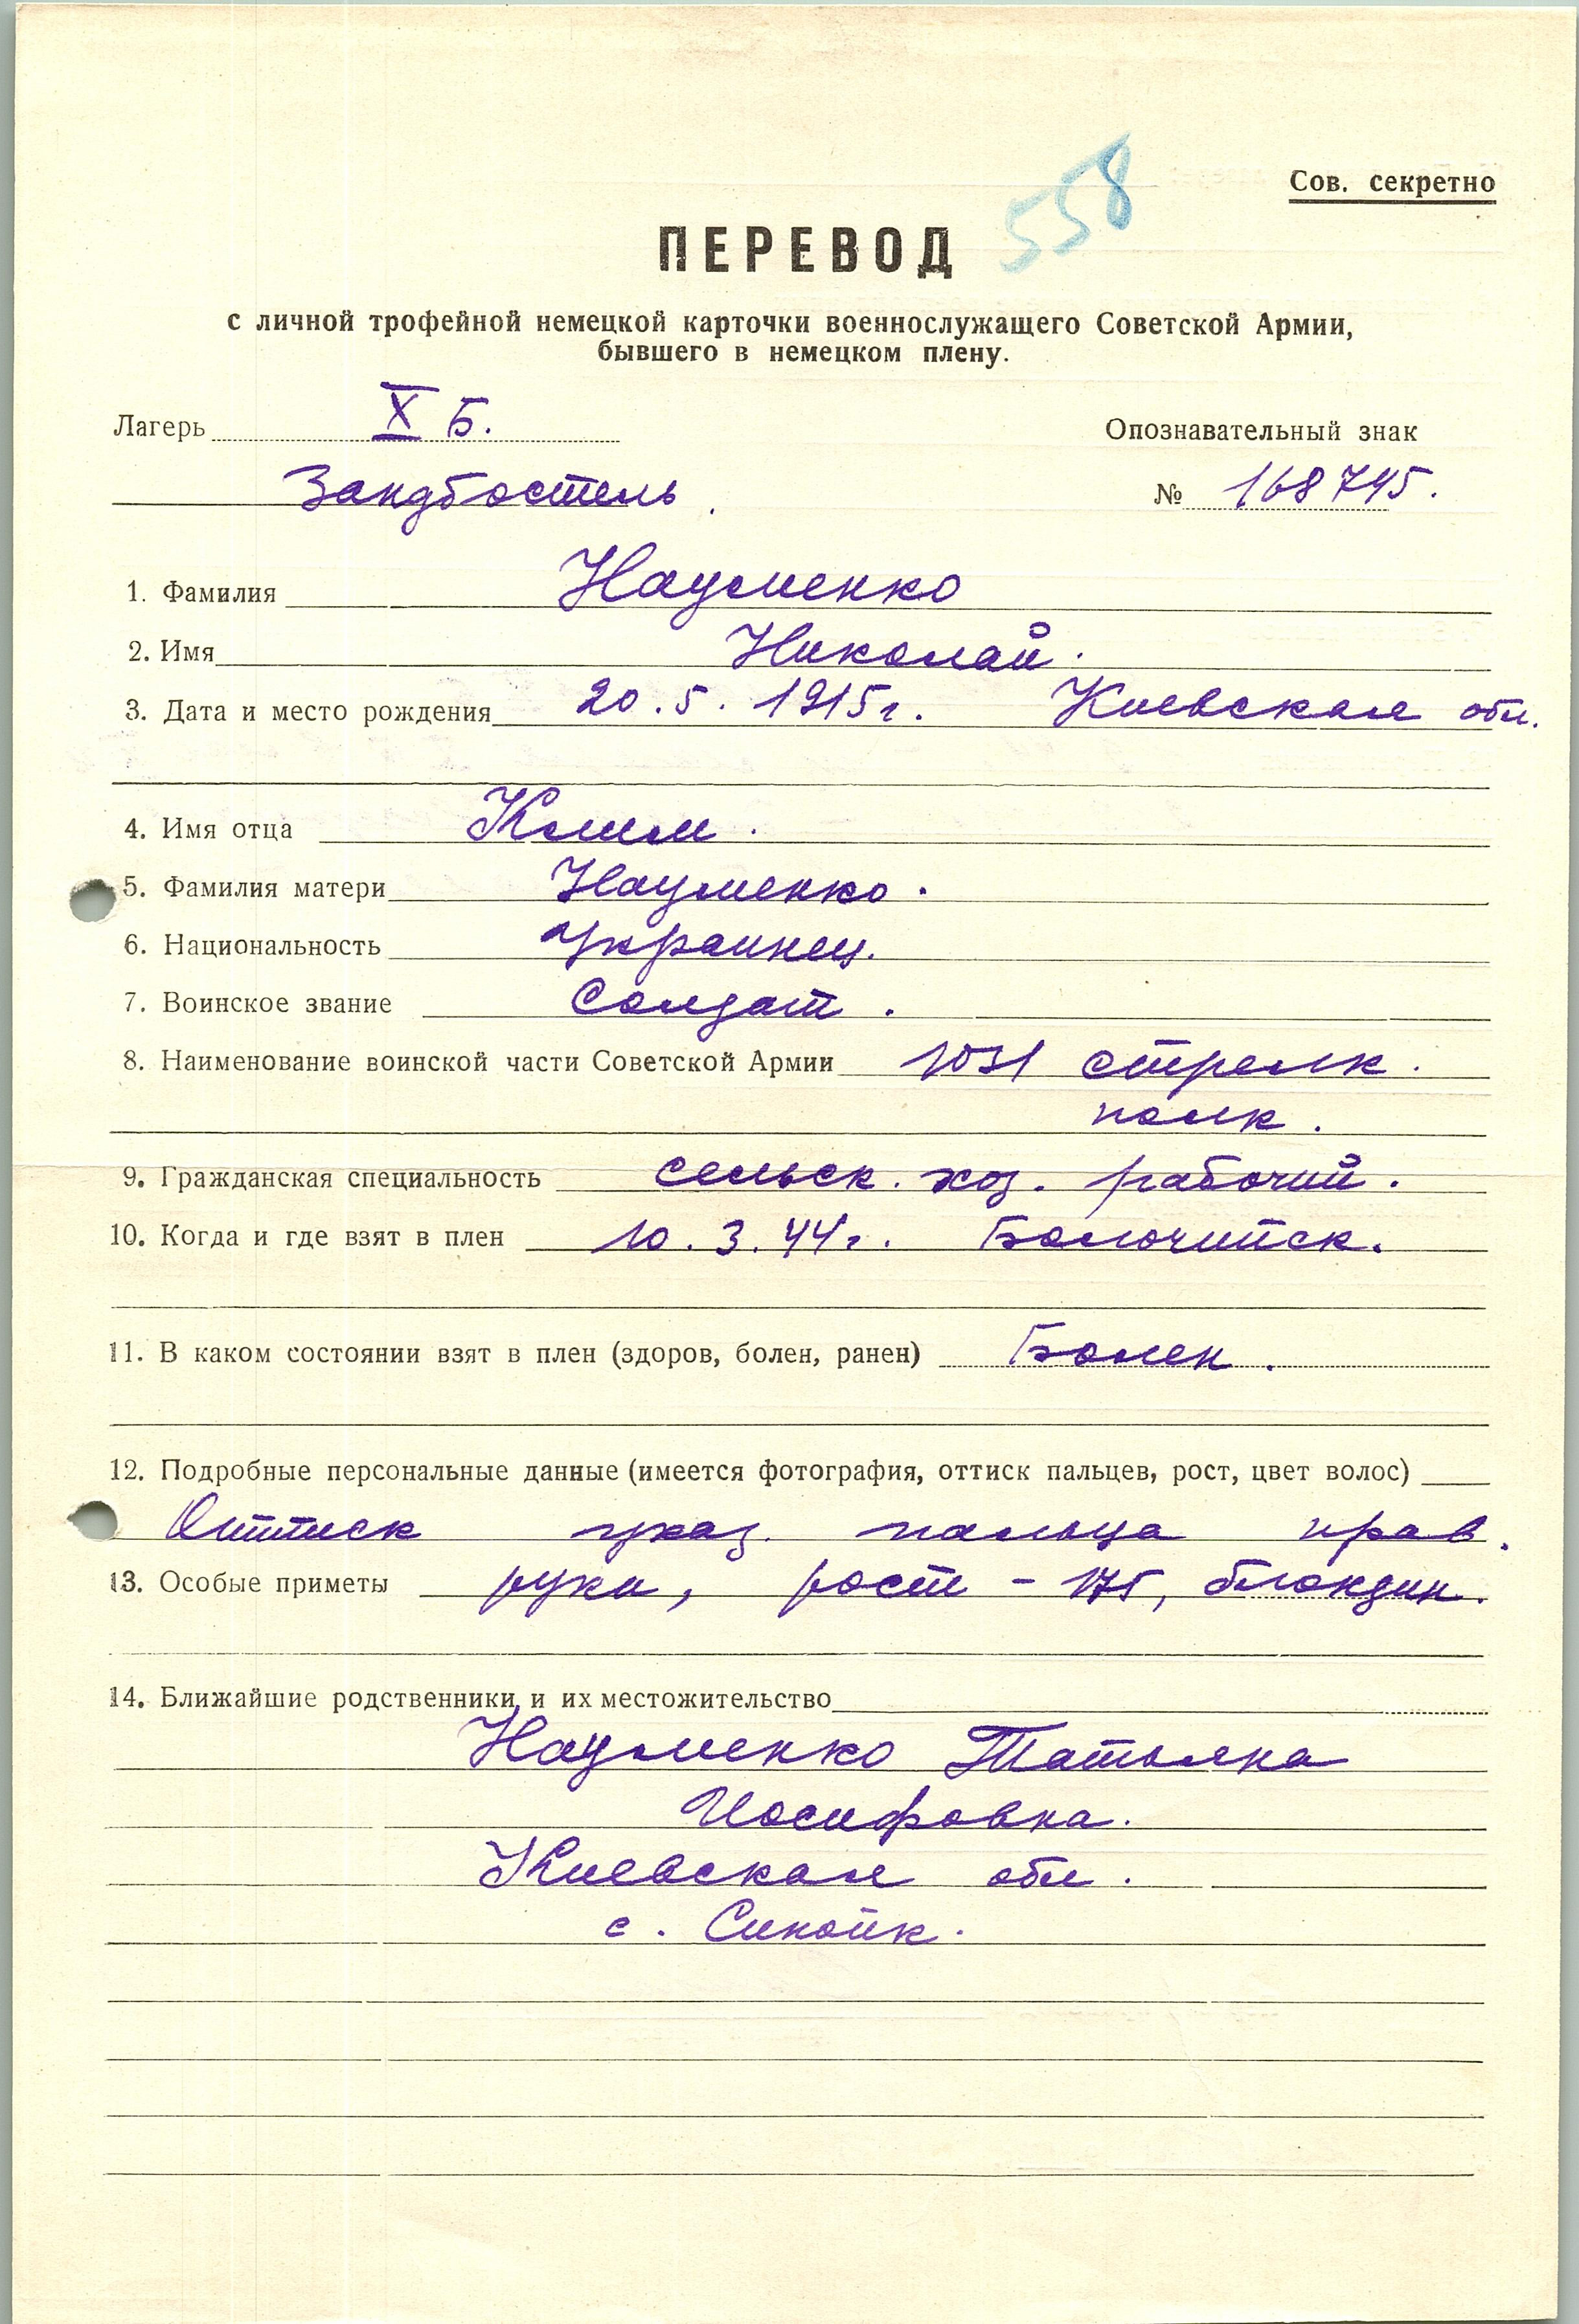 558
Сов. секретно
ПЕРЕВОД
с личной трофейной немецкой карточки военнослужащего Советской Армии,
бывшего в немецком плену.
Лагерь X Б.
Опознавательный знак
Зандбостель.
№ 168745.
1. Фамилия Науменко
2. Имя Николай.
3. Дата и место рождения 20.5.1915г. Киевская обл.
4. Имя отца Клим.
5. Фамилия матери Науменко.
6. Национальность Украинец.
7. Воинское звание Солдат.
8. Наименование воинской части Советской Армии 1031 стрелк.
полк.
9. Гражданская специальность сельск. хоз. рабочий.
10. Когда и где взят в плен 10.3.44г. Болочийск.
11. В каком состоянии взят в плен (здоров, болен, ранен) Болен.
12. Подробные персональные данные (имеется фотография, оттиск пальцев, рост, цвет волос)
Оттиск указ. пальца прав.
13. Особые приметы руки, рост - 175, блондин.
14. Ближайшие родственники и их местожительство
Науменко Татьяна
Иосифовна.
Киевская обл.
с. Синойк.